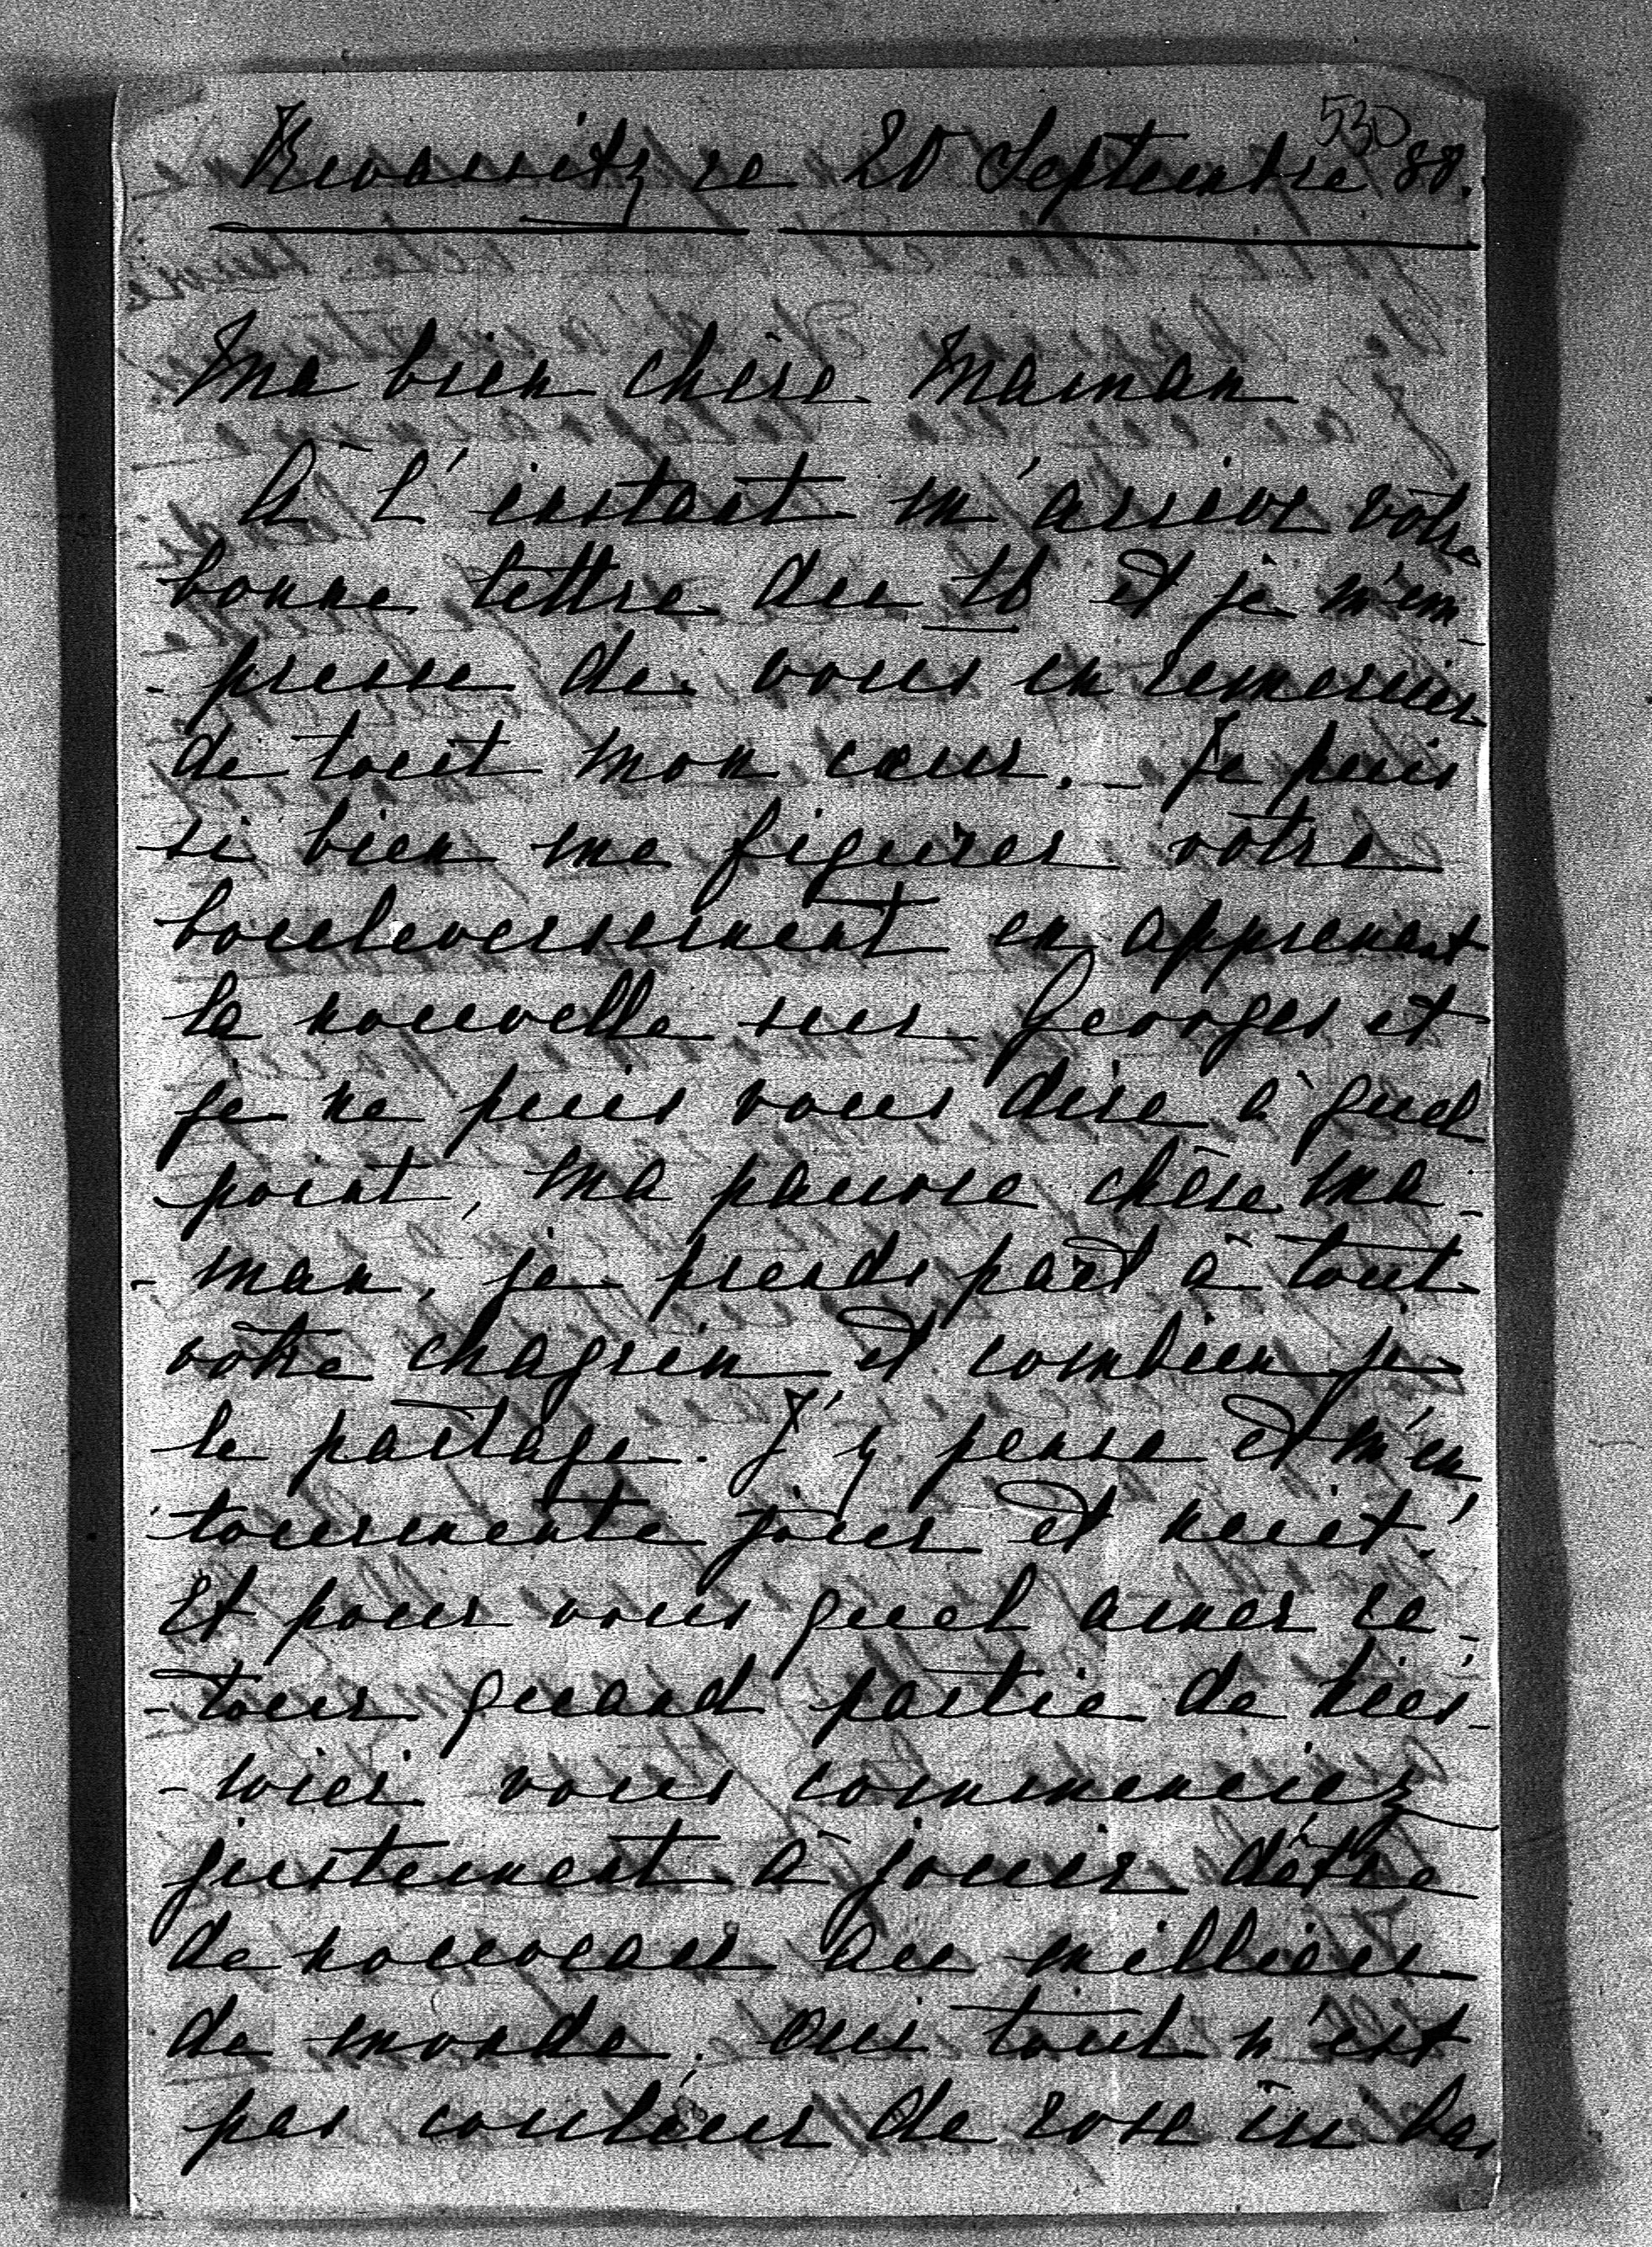 530
ce 20 Septembre 88.
Ma bien chère Maman
À l'instant m'arrive vôtre
bonne lettre du 18 et je m'em-
-presse de vous en remercier
de tout mon cœur. _ Je puis
si bien me figurer vôtre
bouleversement en apprenant
la nouvelle sur Georges et
je ne puis vous dire à quel
point, ma pauvre chère ma-
-man, je prends part à tout
vôtre chagrin et combien je
le partage. J'y pense et m'en
tourmente jour et nuit!
Et pour vous quel amer re-
-tour quand partie de
vous commenciez
justement à jouir d'être
de nouveau au millieu
de monde. Oui tout n'est
pas couleur de rose ici bas